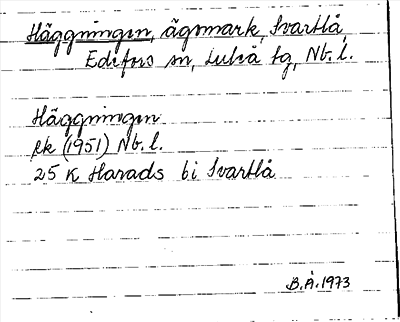 Häggningen, ägomark, Svartlå,
Edefors sn, Luleå tg, Nb. l.
Häggningen
ek (1951) Nb. l.
25 K Harads bi Svartlå
B.Å. 1973